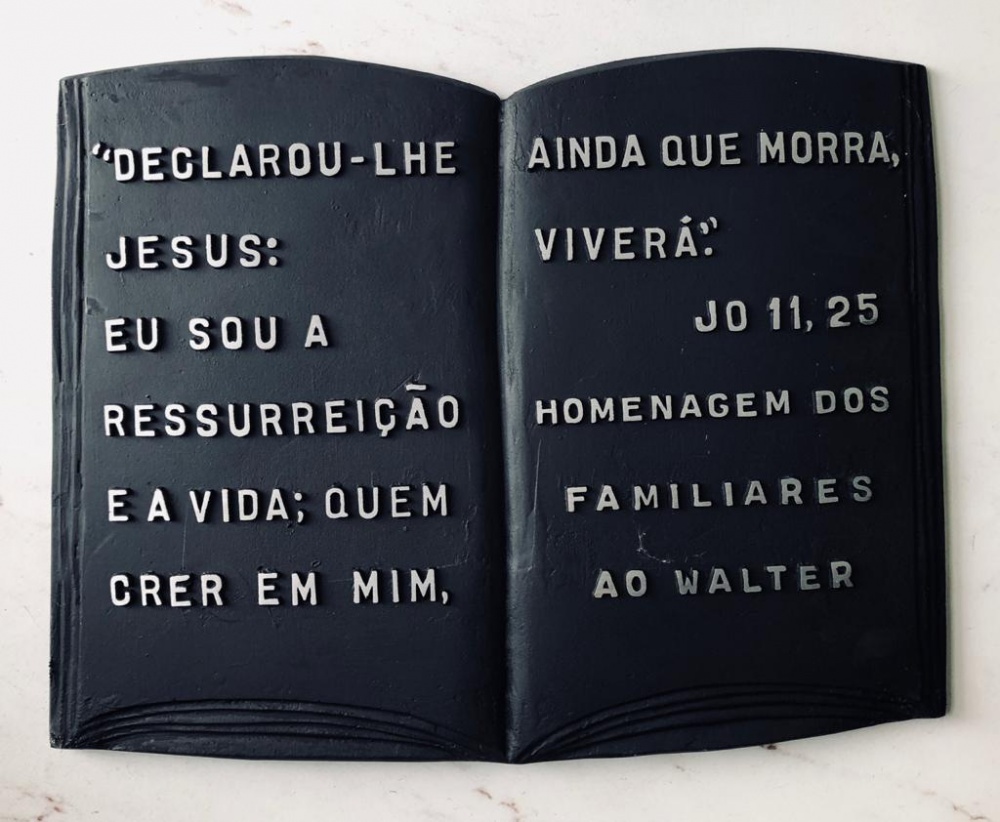 “DECLAROU-LHE
JESUS:
EU SOU A
RESSURREIÇÃO
E A VIDA; QUEM
CRER EM MIM,
AINDA QUE MORRA,
VIVERÁ.”
JO 11, 25
HOMENAGEM DOS
FAMILIARES
AO WALTER